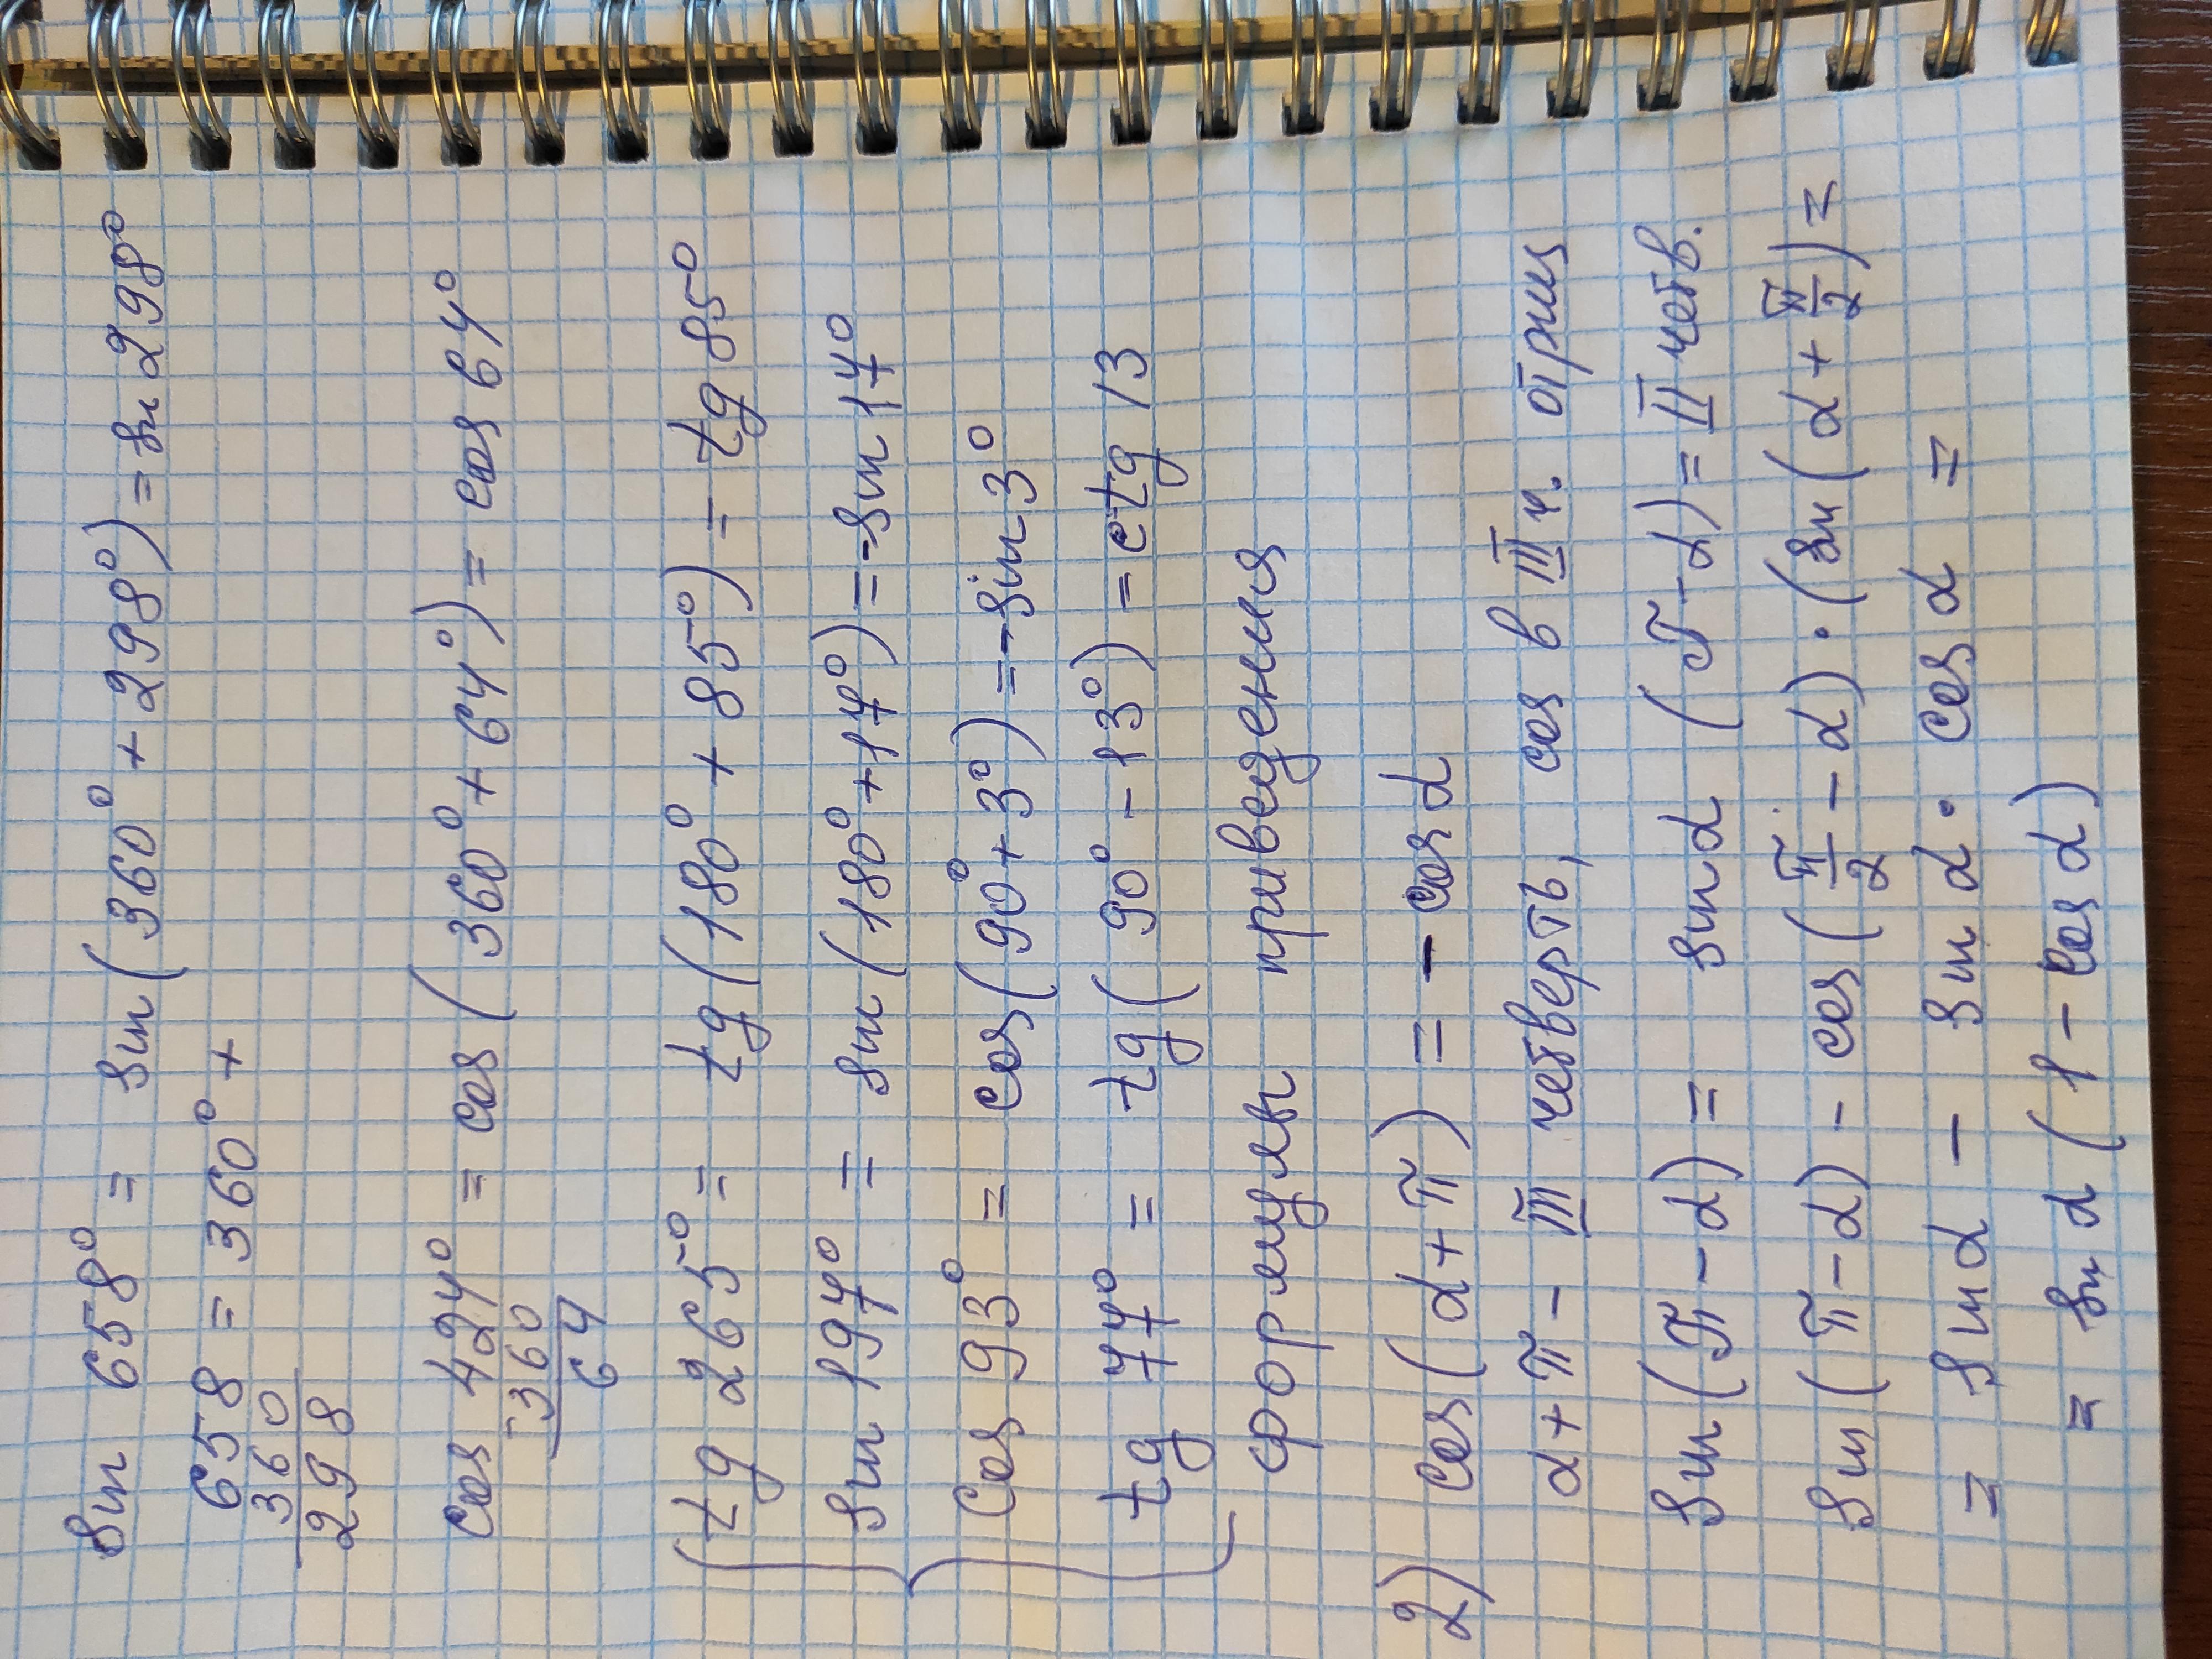 sin 658° = sin(360° + 298°) = sin 298°
658 = 360° +
360
298
cos 424° = cos(360° + 64°) = cos 64°
-360
64
tg 265° = tg(180° + 85°) = tg 85°
sin 197° = sin(180° + 17°) = - sin 17°
cos 93° = cos(90° + 3°) = - sin 3°
tg 77° = tg(90° - 13°) = ctg 13
формулы приведения
2) cos(α + π) = - cos α
α + π - III четверть, cos в III ч. отриц
sin(π - α) = sin α (π - α) = II четв.
sin(π - α) - cos(π/2 - α) · (sin(α + π/2) =
= sin α - sin α · cos α =
= sin α (1 - cos α)